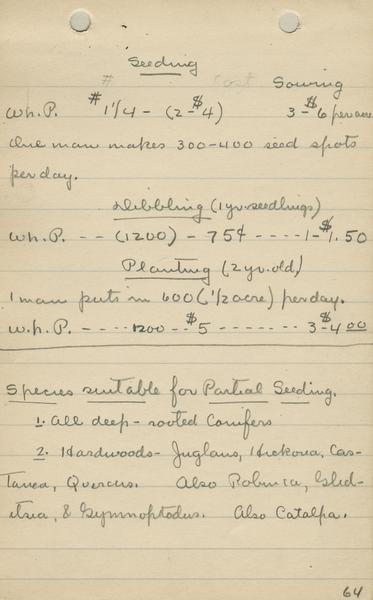 Seeding
# Cost Sowing
Wh. P. # 1 1/4 - (2-$4) 3-$6 per acre
One man makes 300-400 seed spots
per day.
Dibbling (1 yr. seedlings)
Wh. P. -- (1200) - 75¢ ---- 1-$1.50
Planting (2 yr. old)
1 man puts in 600 (1/2 acre) per day.
W. P. ---- 1200 --$5 ------- 3-$4.00
Species suitable for Partial Seeding.
1. All deep-rooted Conifers
2. Hardwoods - Juglans, Hickoria, Cas-
tanea, Quercus. Also Robinia, Gled-
itsia, & Gymnoptodus. Also Catalpa.
64